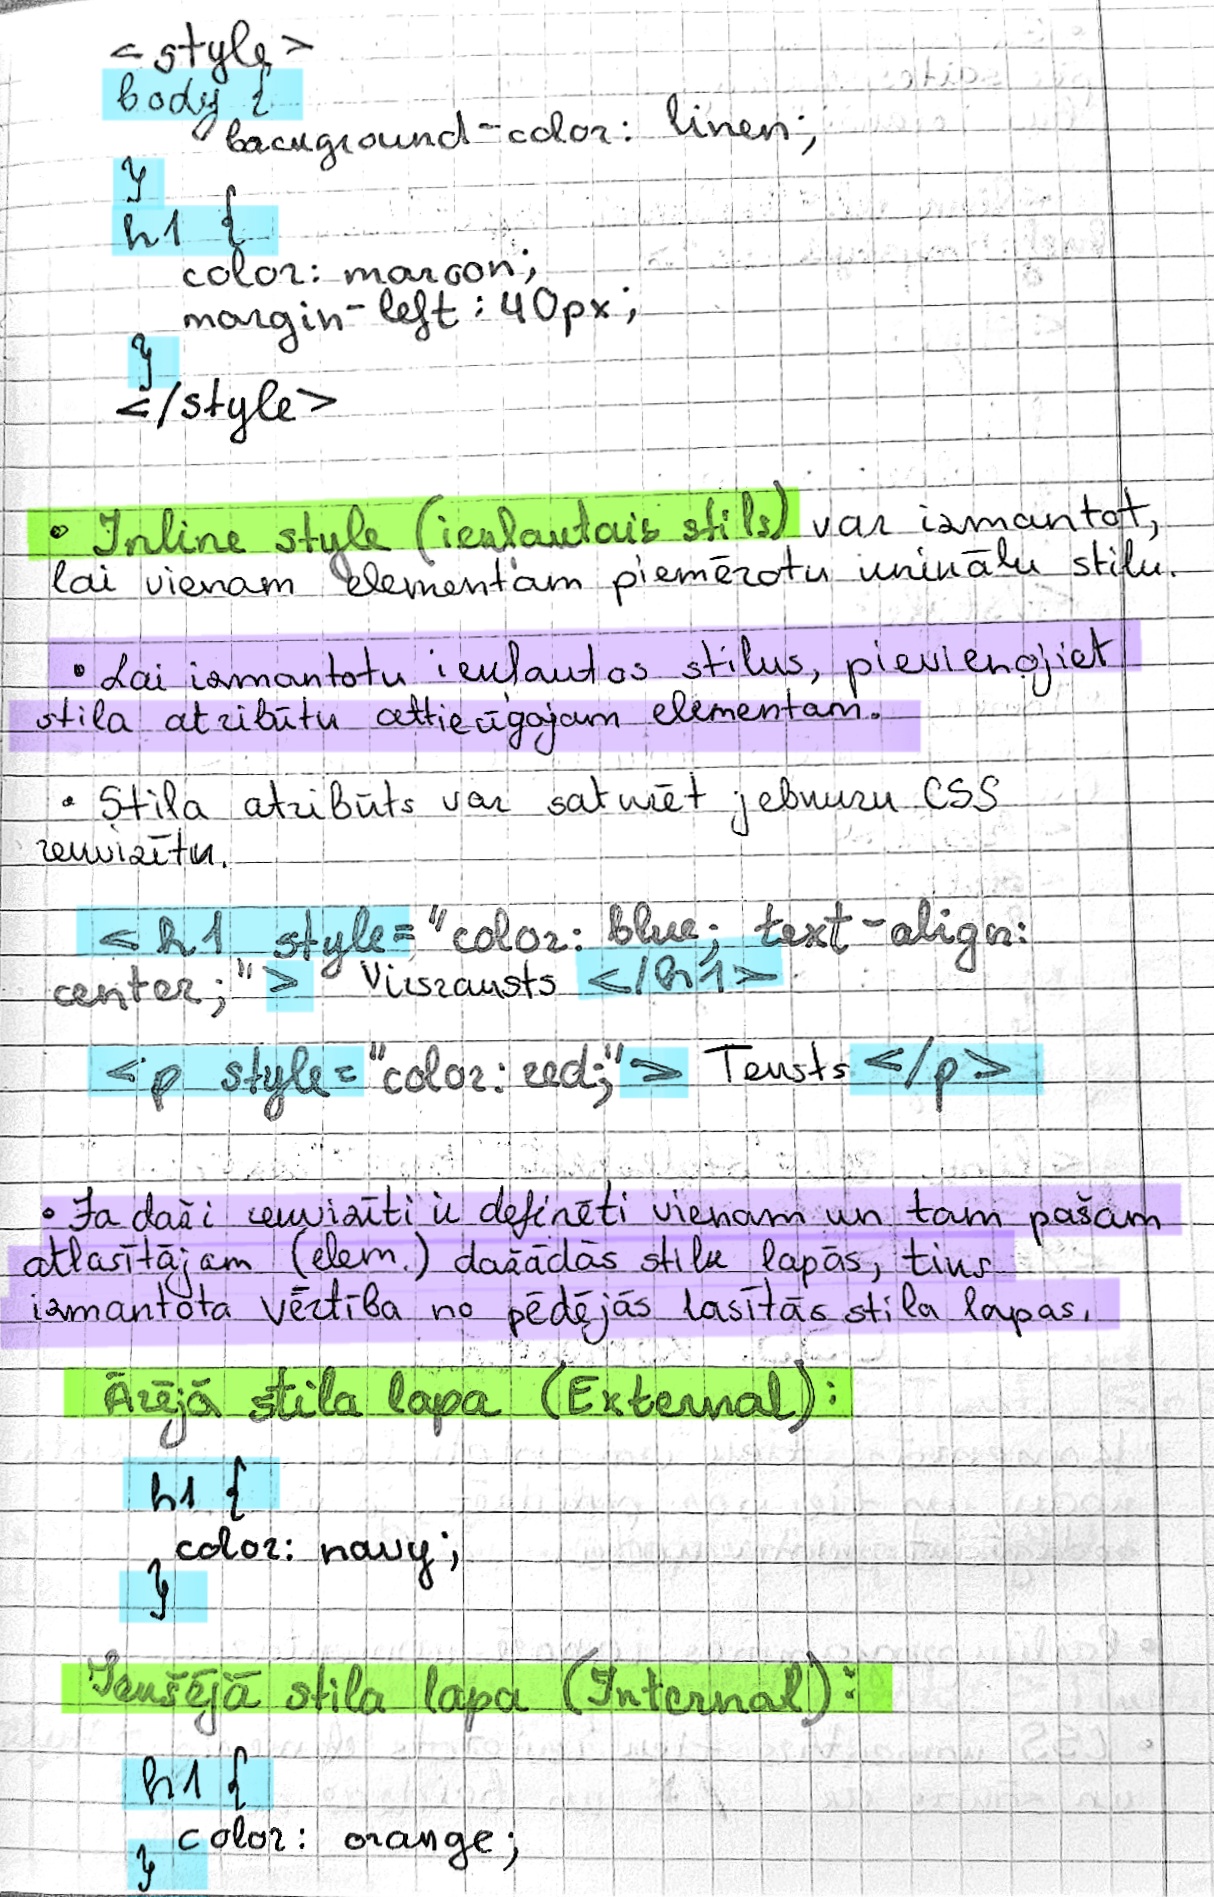 <style>
body {
background-color: linen;
}
h1 {
color: maroon;
margin-left: 40px;
}
</style>
• Inline style (iekļautais stils) var izmantot,
lai vienam elementam piemērotu unikālu stilu.
• Lai izmantotu iekļautos stilus, pievienojiet
stila atribūtu attiecīgajam elementam.
• Stila atribūts var saturēt jebkuru CSS
rekvizītu.
<h1 style="color: blue; text-align:
center;"> Virsraksts </h1>
<p style="color: red;"> Teksts </p>
• Ja daži rekvizīti ir definēti vienam un tam pašam
atlasītājam (elem.) dažādās stila lapās, tiks
izmantota vērtība no pēdējās lasītās stila lapas.
Ārējā stila lapa (External):
h1 {
color: navy;
}
Iekšējā stila lapa (Internal):
h1 {
color: orange;
}